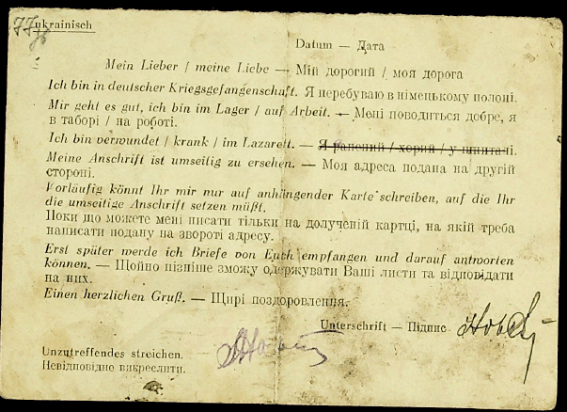 ukrainisch
Datum — Дата
Mein Lieber / meine Liebe — Мій дорогий / моя дорога
Ich bin in deutscher Kriegsgefangenschaft. Я перебуваю в німенькому полоні.
Mir geht es gut, ich bin im Lager / auf Arbeit. — Мені поводиться добре, я
в таборі / на роботі.
Ich bin verwundet / krank / im Lazarett. — Я ранений / хорий / у шпиталі.
Meine Anschrift ist umseitig zu ersehen. — Моя адреса подана на другій
стороні.
Vorläufig könnt Ihr mir nur auf anhängender Karte schreiben, auf die Ihr
die umseitige Anschrift setzen müßt.
Поки що можете мені писати тільки на долученій картці, на якій треба
написати подану на звороті адресу.
Erst später werde ich Briefe von Euch empfangen und darauf antworten
können. — Щойно пізніше зможу одержувати Ваші листи та відповідати
на них.
Einen herzlichen Gruß. — Щирі поздоровлення.
Unterschrift — Підпис
Unzutreffendes streichen.
Невідповідне викреслити.